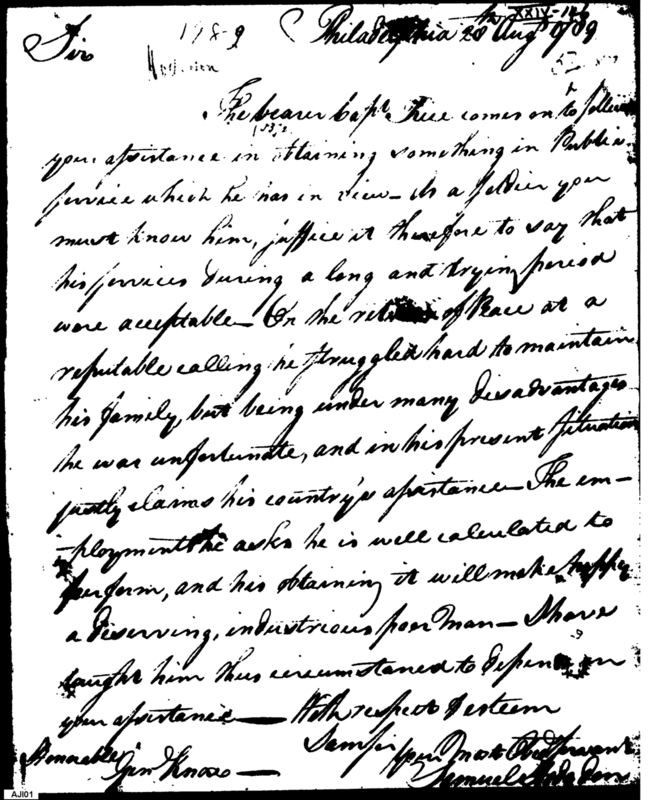 XXIV-146
1789
Philadelphia 28th Augt 1789
Sir
Hodgdon
The bearer Capt. Tree comes on to sollicit
your assistance in obtaining something in Public
service which he has in view – As a Soldier you
must know him, suffice it therefore to say that
his services during a long and trying period
were acceptable – On the return of Peace at a
reputable calling he struggled hard to maintain
his family, but being under many disadvantages
he was unfortunate, and in his present Situation
justly claims his country's assistance – The em-
-ployment he asks he is well calculated to
perform, and his obtaining it will make happy
a deserving, industrious poor Man – I have
taught him thus circumstanced to depend on
your assistance — With respect & esteem
I am Sir
your Most Obed Servant
Honorable
Genl Knox —
Samuel Hodgdon
AJI01